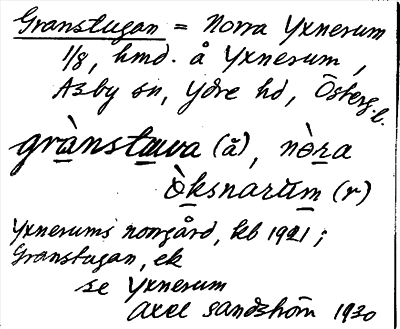 Granstugan = Norra Yxnerum
1/8, hmd. å Yxnerum,
Asby sn, Ydre hd, Österg. l.
grànstuva (å), nòra
òksnarum (r)
Yxnerums norrgård, kb 1921;
Granstugan, ek
se Yxnerum
Axel Sandström 1930